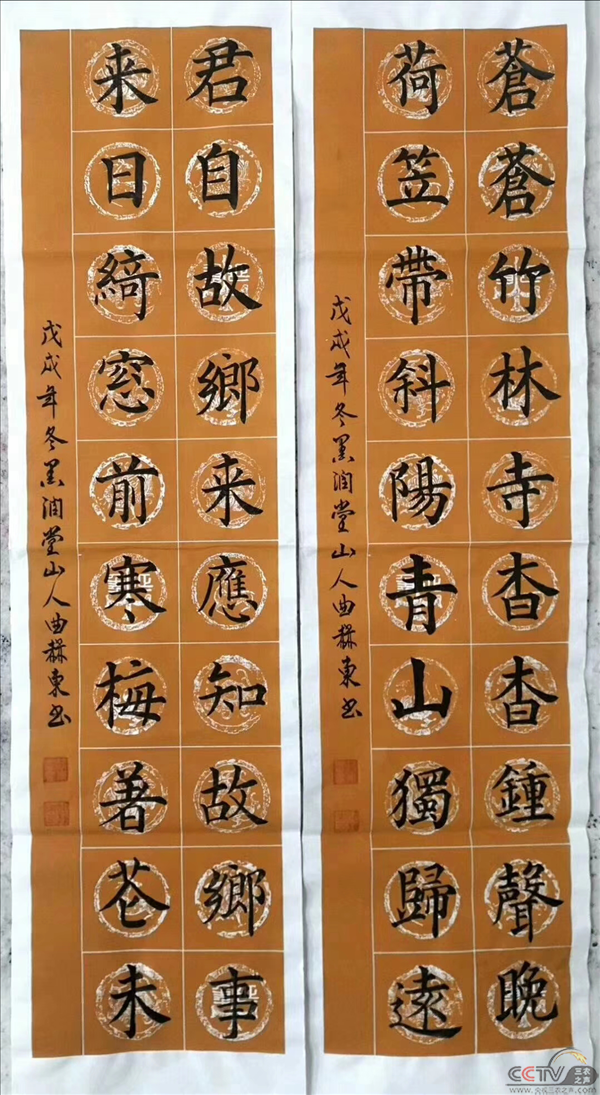 蒼蒼竹林寺杳杳鍾聲晚
荷笠帶斜陽青山獨歸遠
戊戌年冬墨润堂山人曲東书
君自故鄉来應知故鄉事
来日綺窓前寒梅著花未
戊戌年冬墨润堂山人曲東书
CCTV 三农之声
www.央视三农之声.com